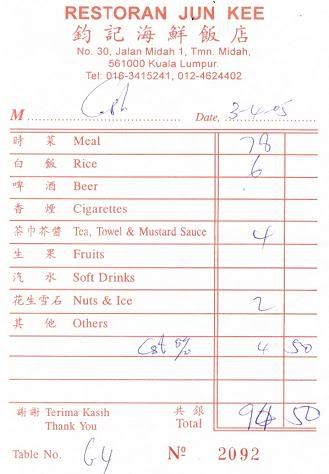 RESTORAN JUN KEE
鈞記海鮮飯店
No. 30, Jalan Midah 1, Tmn. Midah,
561000 Kuala Lumpur.
Tel: 016-3415241, 012-4624402
M Cash Date, 3-4-05
時菜 Meal 78
白飯 Rice 6
啤酒 Beer
香煙 Cigarettes
茶巾芥醬 Tea, Towel & Mustard Sauce 4
生果 Fruits
汽水 Soft Drinks
花生雪石 Nuts & Ice 2
其他 Others
5% 4 50
謝謝 Terima Kasih 共銀 94 50
Thank You Total
Table No. 64 Nº 2092